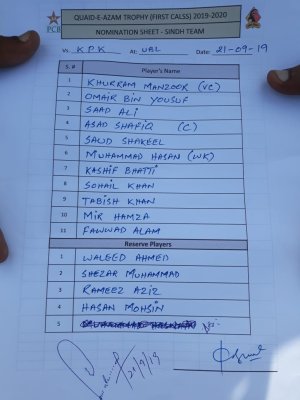 QUAID-E-AZAM TROPHY (FIRST CALSS) 2019-2020
PCB
NOMINATION SHEET - SINDH TEAM
Vs. KPK At: UBL Date: 21-09-19
S.# Player's Name
1 KHURRAM MANZOOR (VC)
2 OMAIR BIN YOUSUF
3 SAAD ALI
4 ASAD SHAFIQ (C)
5 SAUD SHAKEEL
6 MUHAMMAD HASAN (WK)
7 KASHIF BHATTI
8 SOHAIL KHAN
9 TABISH KHAN
10 MIR HAMZA
11 FAWWAD ALAM
Reserve Players
1 WALEED AHMED
2 SHEZAR MUHAMMAD
3 RAMEEZ AZIZ
4 HASAN MOHSIN
5
21/9/19